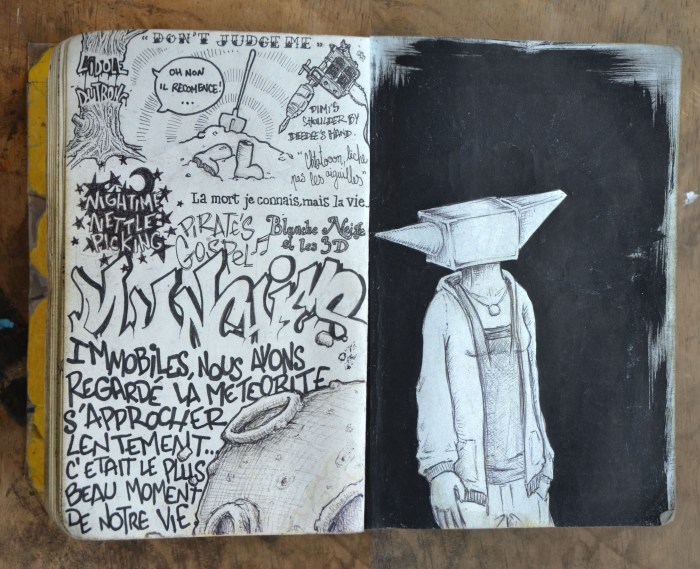 "DON'T JUDGE ME"
L'IDOLE
OH NON
IL RECOMENCE!
...
DIMI'S
SHOULDER BY
'S HAND.
"Chtatooon, lèche
pas les aiguilles"
NIGHTIME
NETTLE
PICKING
La mort je connais, mais la vie...
PIRATE'S
GOSPEL
Blanche Neige
et les 3D
IMMOBILES, NOUS AVONS
REGARDÉ LA METEORITE
S'APPROCHER
LENTEMENT...
C'ETAIT LE PLUS
BEAU MOMENT
DE NOTRE VIE